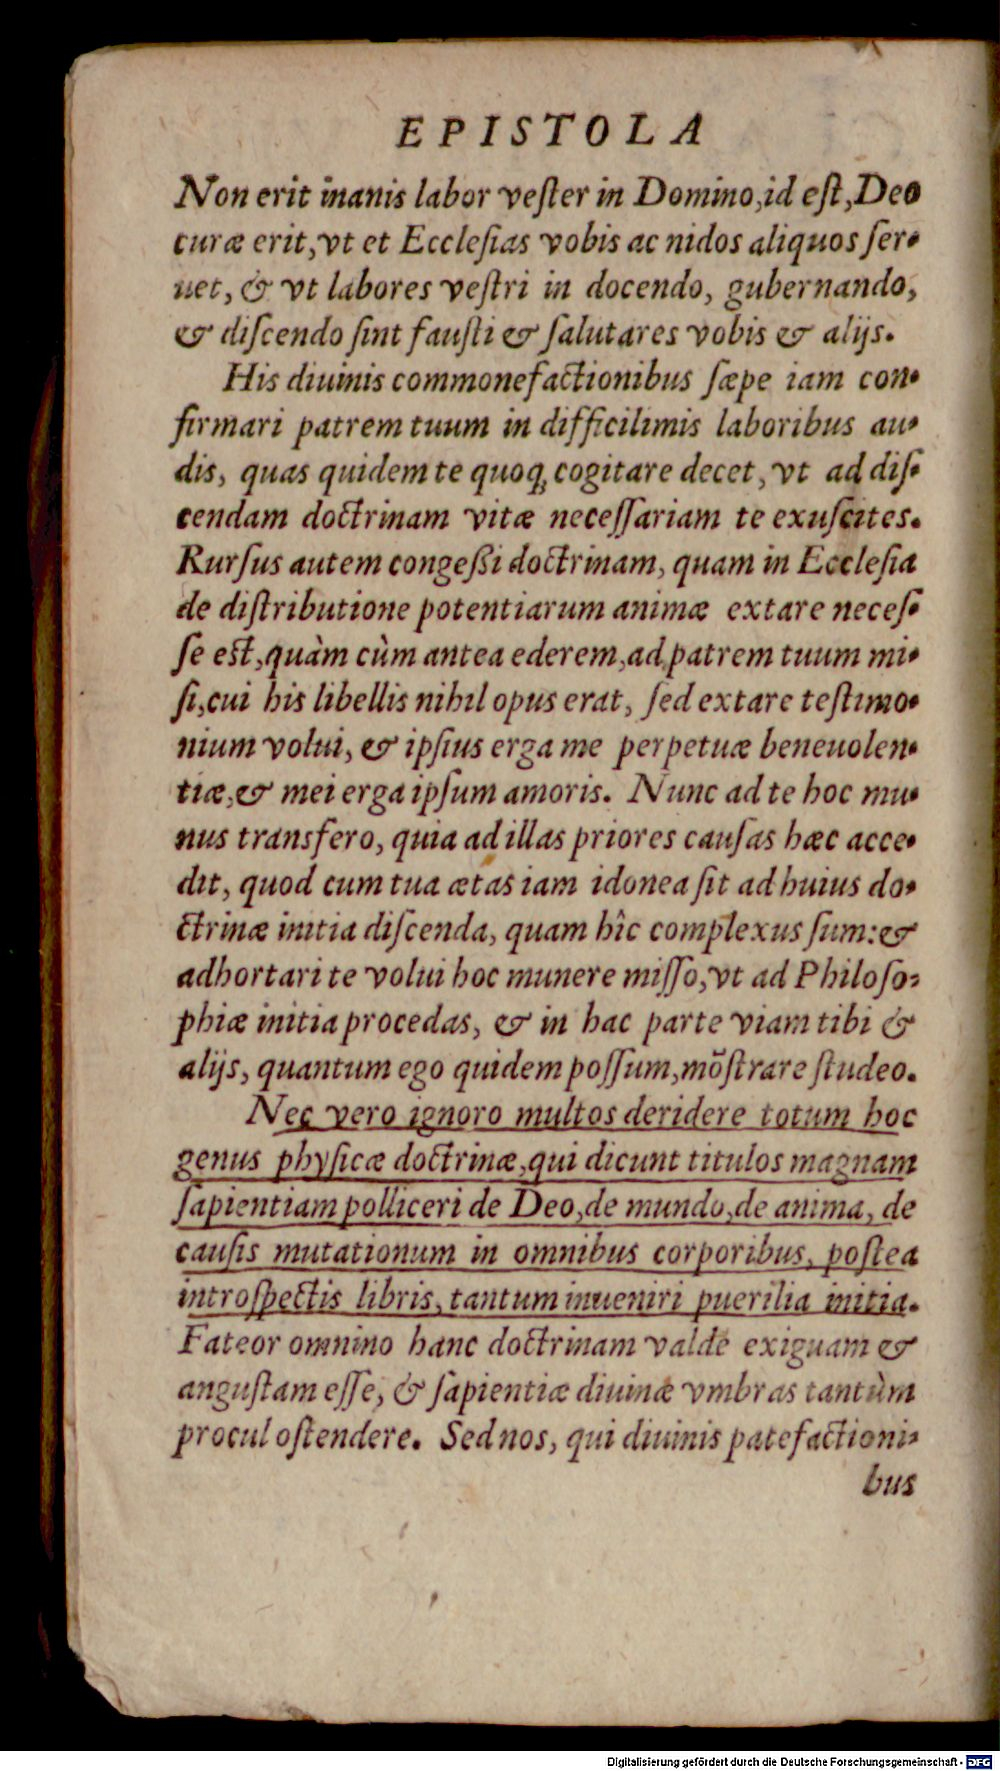 EPISTOLA
Non erit inanis labor veſter in Domino, id eſt, Deo
curæ erit, vt et Eccleſias vobis ac nidos aliquos ſer-
uet, & vt labores veſtri in docendo, gubernando,
& diſcendo ſint fauſti & ſalutares vobis & alijs.
His diuinis commonefactionibus ſæpe iam con-
firmari patrem tuum in difficilimis laboribus au-
dis, quas quidem te quoq; cogitare decet, vt ad diſ-
cendam doctrinam vitæ neceſſariam te exuſcites.
Rurſus autem congeßi doctrinam, quam in Eccleſia
de diſtributione potentiarum animæ extare neceſ-
ſe est, quàm cùm antea ederem, ad patrem tuum mi-
ſi, cui his libellis nihil opus erat, ſed extare teſtimo-
nium volui, & ipſius erga me perpetuæ beneuolen-
tiæ, & mei erga ipſum amoris. Nunc ad te hoc mu-
nus transfero, quia ad illas priores cauſas hæc acce-
dit, quod cum tua ætas iam idonea ſit ad huius do-
ctrinæ initia diſcenda, quam hîc complexus ſum: &
adhortari te volui hoc munere miſſo, vt ad Philoſo-
phiæ initia procedas, & in hac parte viam tibi &
alijs, quantum ego quidem poſſum, mõſtrare ſtudeo.
Nec vero ignoro multos deridere totum hoc
genus phyſicæ doctrinæ, qui dicunt titulos magnam
ſapientiam polliceri de Deo, de mundo, de anima, de
cauſis mutationum in omnibus corporibus, poſtea
introſpectis libris, tantum inueniri puerilia initia.
Fateor omnino hanc doctrinam valde exiguam &
anguſtam eſſe, & ſapientiæ diuinæ vmbras tantùm
procul oſtendere. Sed nos, qui diuinis patefactioni-
bus
Digitalisierung gefördert durch die Deutsche Forschungsgemeinschaft - DFG